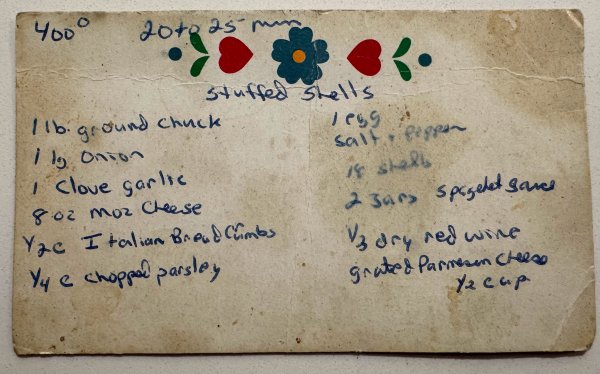 400° 20 to 25 min
Stuffed Shells
1 lb. ground chuck
1 lg onion
1 Clove garlic
8 oz moz Cheese
1/2 c Italian Bread Crumbs
1/4 c chopped parsley
1 egg
salt + pepper
18 shells
2 Jars spagetti sauce
1/3 dry red wine
grated Parmesan Cheese
1/2 cup